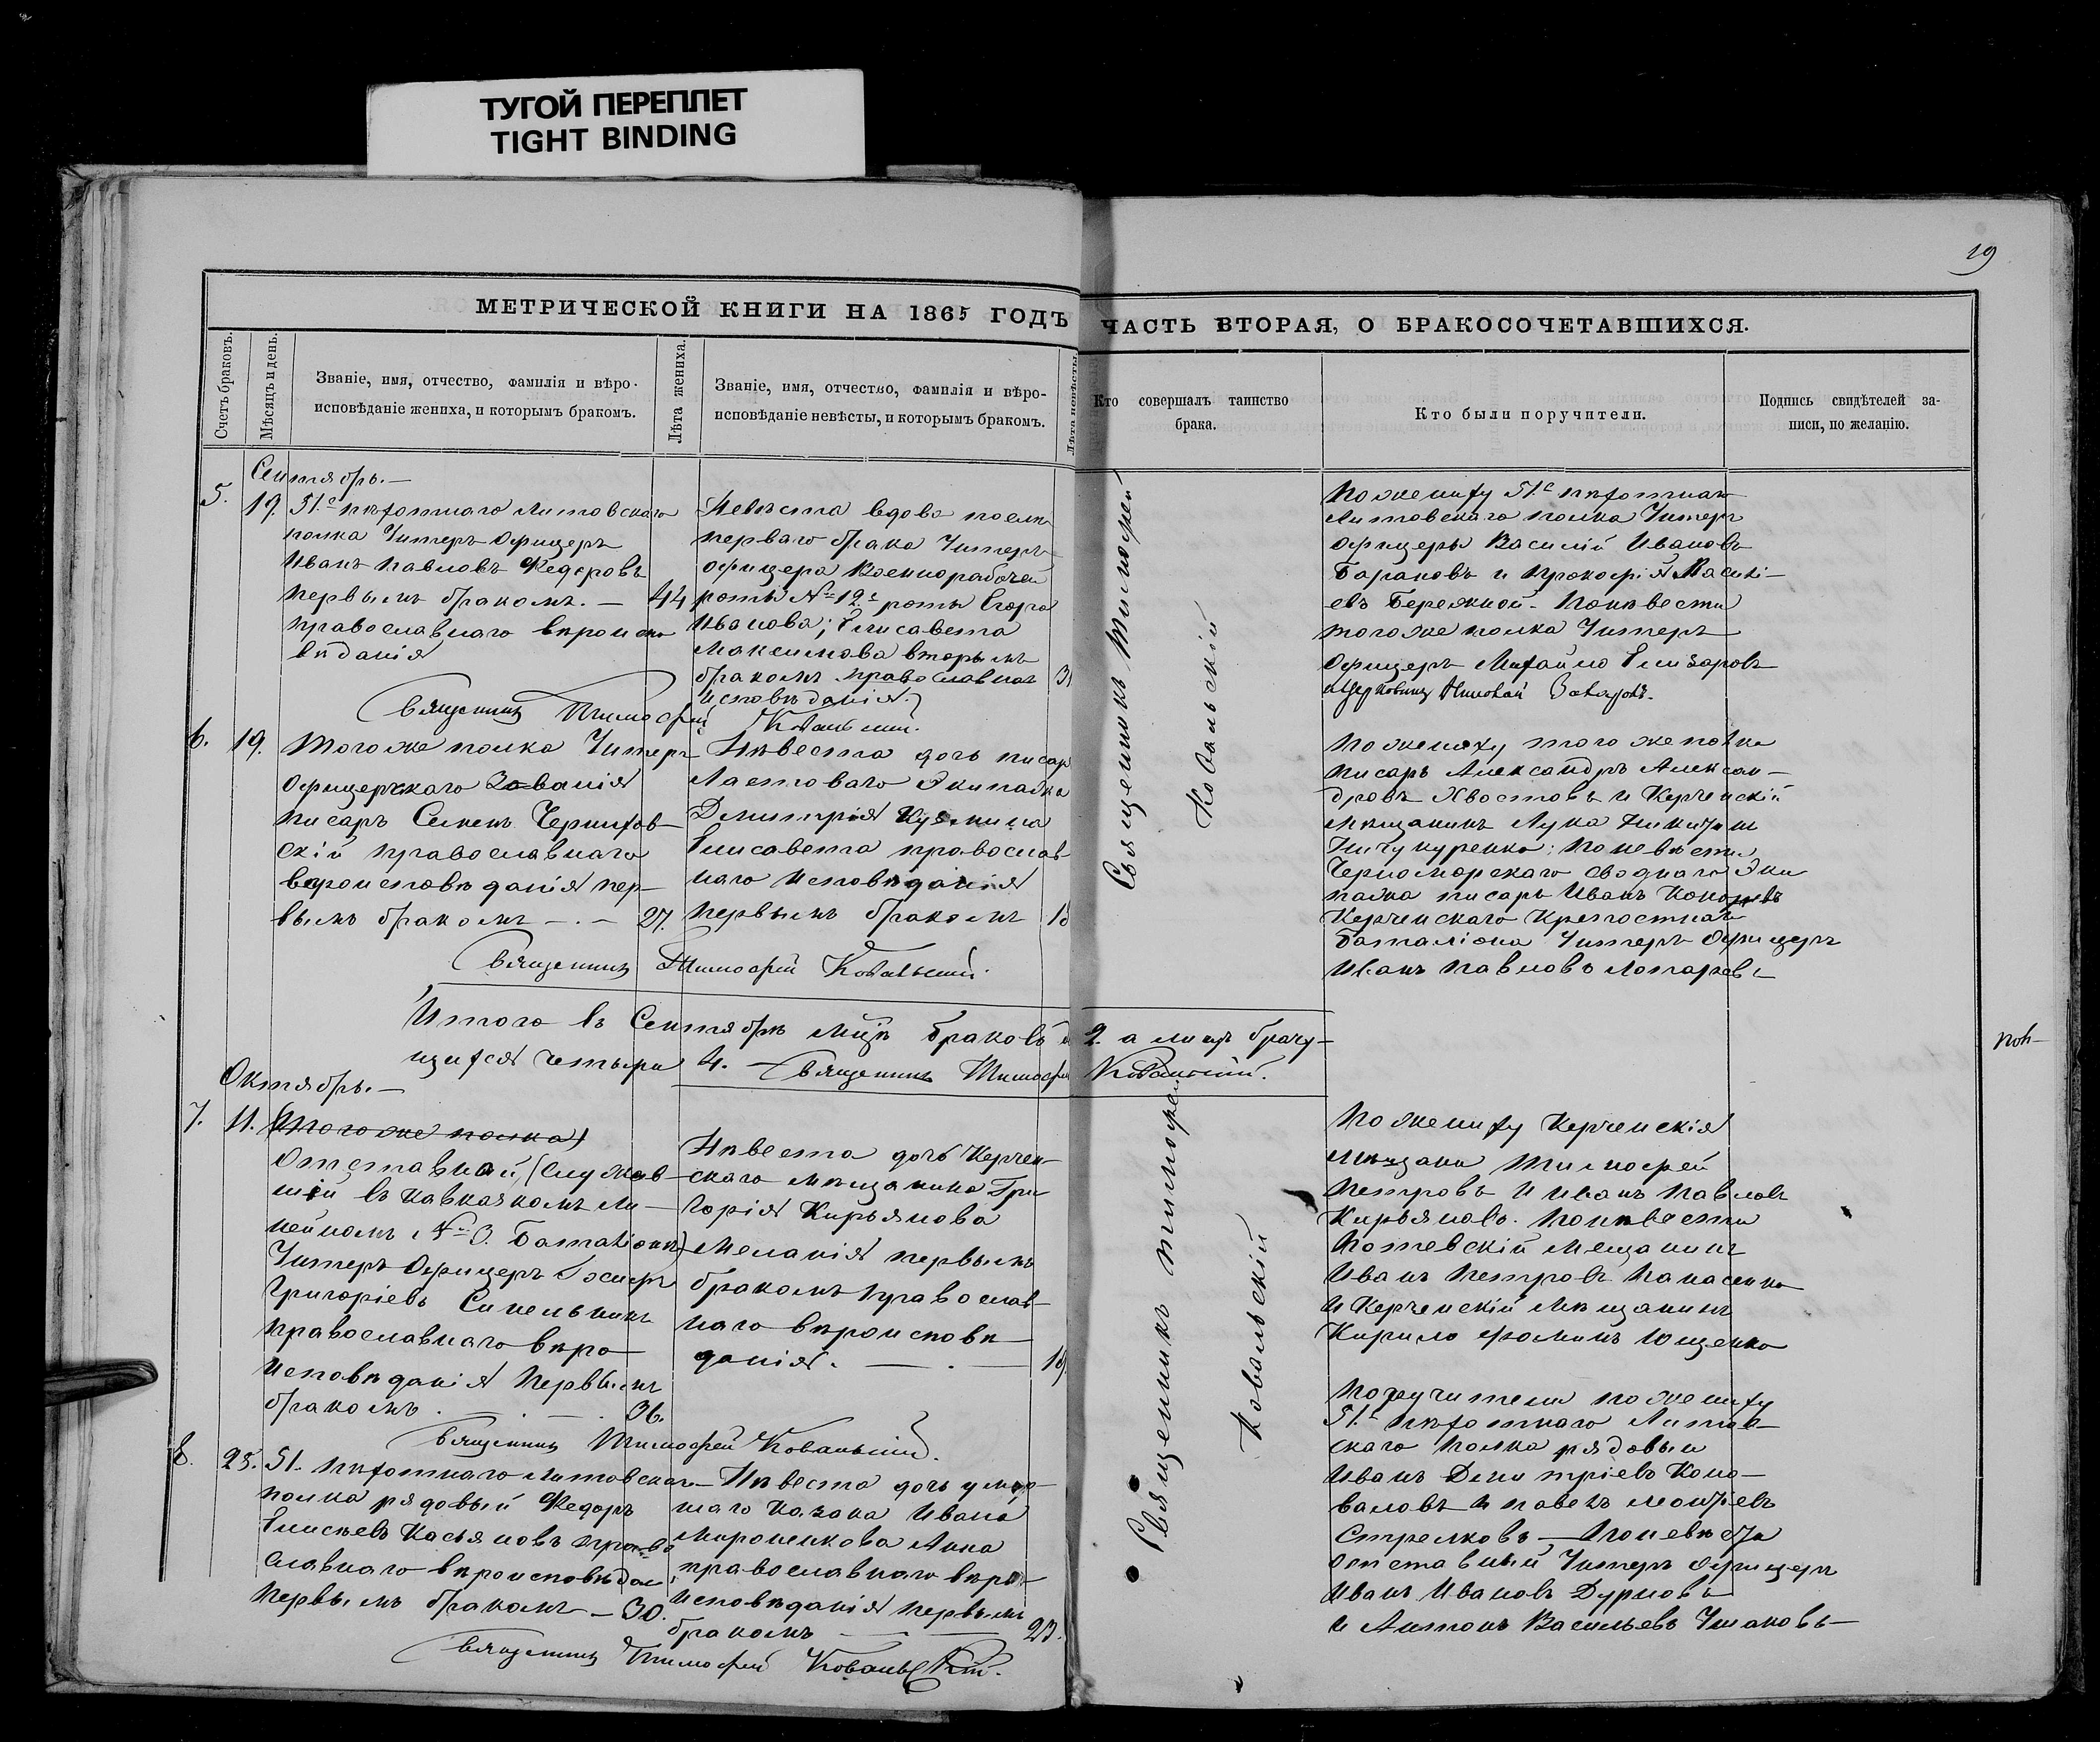 ТУГОЙ ПЕРЕПЛЕТ
TIGHT BINDING
19
МЕТРИЧЕСКОЙ КНИГИ НА 1865 ГОДЪ
ЧАСТЬ ВТОРАЯ, О БРАКОСОЧЕТАВШИХСЯ.
Счетъ браковъ.
Мѣсяцъ и день.
Званіе, имя, отчество, фамилія и вѣро-
исповѣданіе жениха, и которымъ бракомъ.
Лѣта жениха.
Званіе, имя, отчество, фамилія и вѣро-
исповѣданіе невѣсты, и которымъ бракомъ.
Лѣта невѣсты.
Кто совершалъ таинство
брака.
Кто были поручители.
Подпись свидѣтелей за-
писи, по желанію.
Сентябрь.—
5.
19.
51.го пѣхотнаго Литовскаго
полка Унтеръ Офицеръ
Иванъ Павловъ Федоровъ
первымъ бракомъ. — 44
православнаго вѣроиспо
вѣданія
Невѣста вдова после
перваго брака Унтеръ
офицера Военнорабочей
роты № 12й роты Егора
Иванова; Елисавета
Максимова вторымъ
бракомъ православнаго
исповѣданія.
Священникъ Тимофей Ковальскій.
Священникъ Тимофей
Ковальскій
По жениху 51.го пѣхотнаго
Литовскаго полка Унтеръ
офицеры Василій Ивановъ
Барановъ и Прокофій Василі-
евъ Бережной. По невѣсти
того же полка Унтеръ
Офицеръ Михайло Елизаровъ
6.
19.
Того же полка Унтеръ
Офицерскаго Званія
писарь Семенъ Чернихов-
скій православнаго
вероисповѣданія пер-
вымъ бракомъ — . — 27.
Невѣста дочь писаря
Ластоваго Экипажа
Димитрія Кузмина
Елисавета православ-
наго исповѣданія
первымъ бракомъ 18
Священникъ Тимофей Ковальскій.
По жениху того же полка
писарь Александръ Алексан-
дровъ Хвостовъ и Керченскій
мѣщанинъ Лука Никитин
по невѣсти
Черноморскаго сводного Эки
пажа писарь Иванъ
Керченскаго Крепостнаго
Баталіона Унтеръ Офицеръ
Иванъ Павловъ
Итого въ Сентябрѣ мцѣ браковъ 2. а лицъ брачу-
щихся четыри 4. — Священникъ Тимофей Ковальскій.
Октябрь.—
7.
11.
(Того же полка)
Отставной, (служив-
шій въ Кавказкомъ Ли-
нейномъ № 3. Баталіонѣ)
Унтеръ Офицеръ Іосифъ
Григоріевъ Синельникъ
православнаго вѣро
исповѣданія первымъ
бракомъ . — . — . 36.
Невѣста дочь Керчен-
скаго мѣщанина Гри
горія Кирьянова
Меланія первымъ
бракомъ православ-
наго вѣроисповѣ-
данія. — . — 19.
Священникъ Тимофей Ковальскій.
Священникъ Тимофей
Ковальскій
По жениху Керченскія
мѣщани Тимофей
Петровъ и Иванъ Павловъ
Кирьяновъ. По невѣсти
Иванъ Петровъ Панасенко
и Керченскій мѣщанинъ
Кирило Фоминъ Ющенко
8.
25.
51. пѣхотнаго Литовскаго
полка рядовый Федоръ
Елисѣевъ Касьяновъ право
славнаго вѣроисповѣдан
первымъ бракомъ — 30.
Невѣста дочь умер-
шаго Казака Ивана
Мироненкова Анна
православнаго вѣро-
исповѣданія первымъ
бракомъ — — 23.
Священникъ Тимофей Ковальскій.
Поручители по жениху
51.го пѣхотнаго Литов-
скаго полка рядовыи
Иванъ Дмитріевъ Коно-
валовъ и Павелъ
Стрелковъ — По невѣсти
отставный Унтеръ Офицеръ
Иванъ Ивановъ Дурновъ
и Антонъ Васильевъ Ушаковъ —